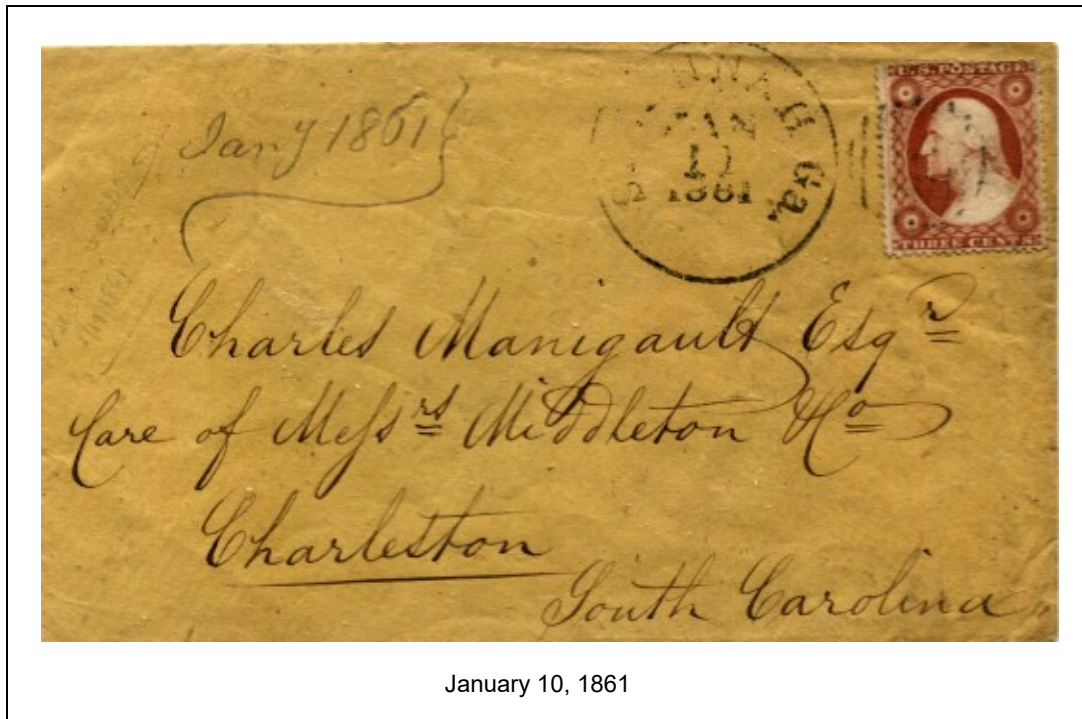 9 Jany 1861
SAVANNAH Ga.
JAN
1861
U.S. POSTAGE
THREE CENTS
Charles Manigault Esqr
Care of Messrs Middleton & Co
Charleston
South Carolina
January 10, 1861